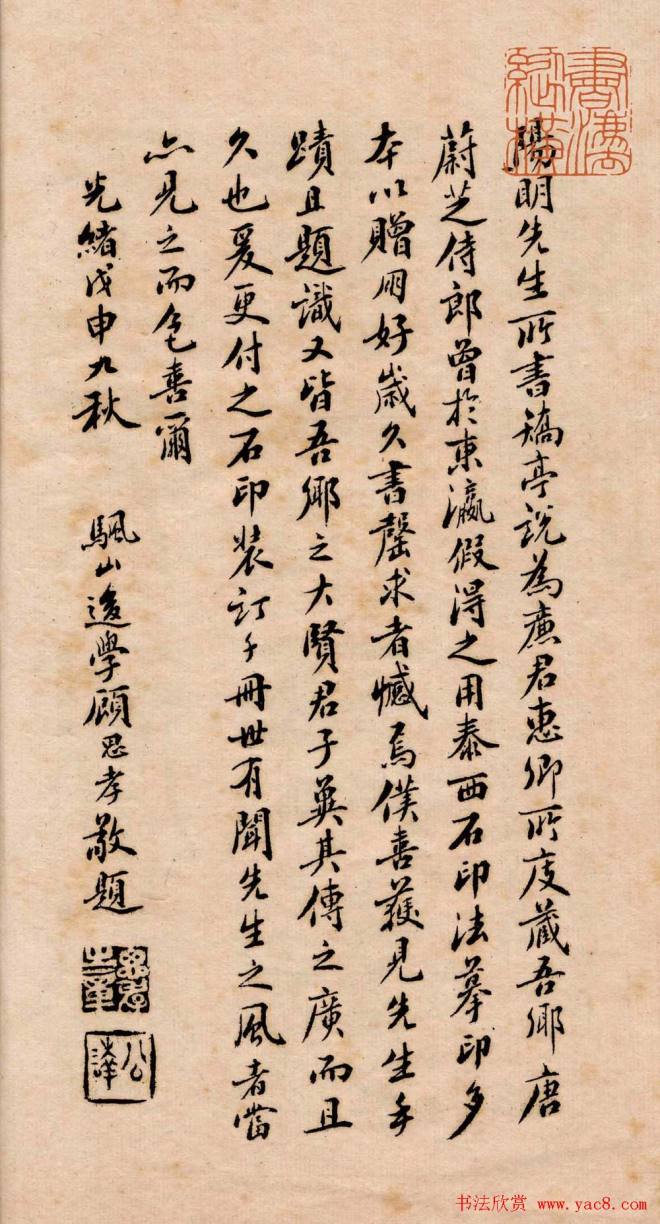 陽明先生所書矯亭說為廉君惠卿所庋藏吾鄉唐
蔚芝侍郎曾於東瀛假得之用泰西石印法摹印多
本以贈朋好歲久書罄求者憾焉僕喜獲見先生手
蹟且題識又皆吾鄉之大賢君子冀其傳之廣而且
久也爰更付之石印裝訂千冊世有聞先生之風者當
亦見之而色喜爾
光緒戊申九秋
颿山後學顧思孝敬題
书法欣赏 www.yac8.com